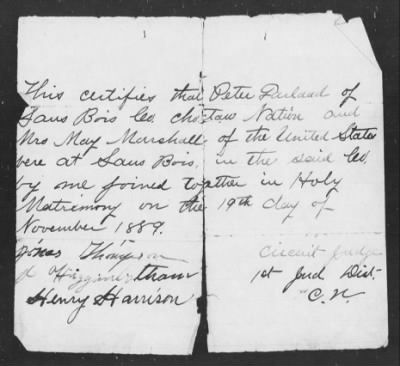 This certifies that Peter Durland of
Sans Bois Co. choctaw Nation and
Mrs May Marshall, of the United States
were at Sans Bois, in the said Co,
by me joined together in Holy
Matrimony on the 19th day of
November 1889.
Jonas Thompson
Circuit Judge
1st Jud Dist.
Henry Harrison
C. N.